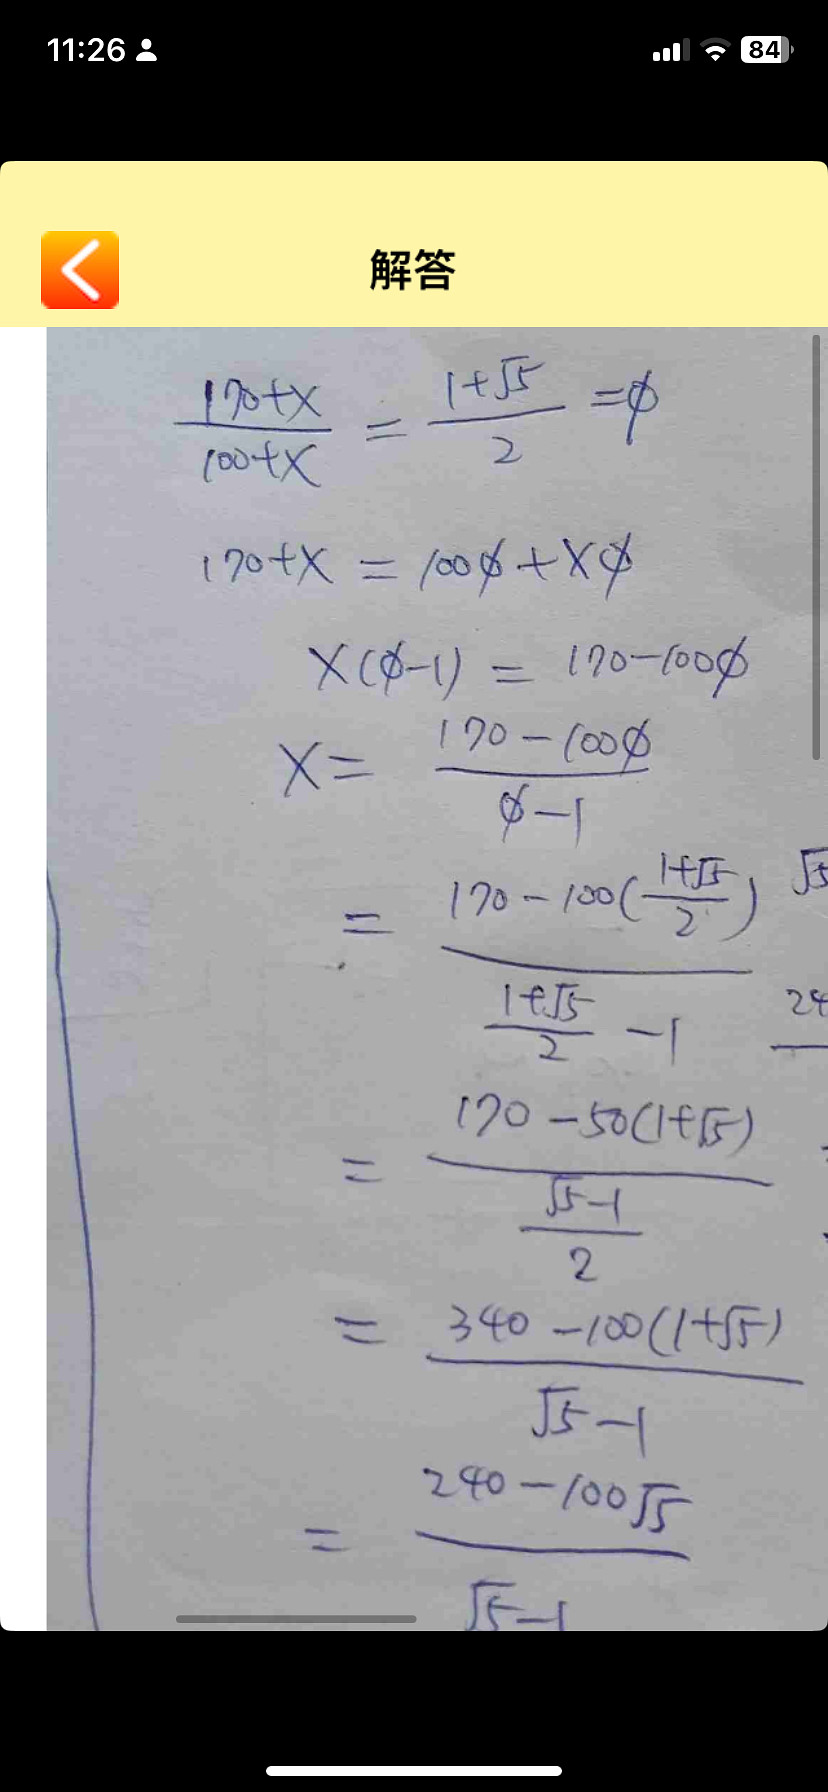 11:26
84
解答
(170+x)/(100+x) = (1+√5)/2 = φ
170+x = 100φ+xφ
x(φ-1) = 170-100φ
x = (170-100φ)/(φ-1)
= (170-100((1+√5)/2))/((1+√5)/2 -1)
√5
24
= (170-50(1+√5))/((√5-1)/2)
= (340-100(1+√5))/(√5-1)
= (240-100√5)/(√5-1)